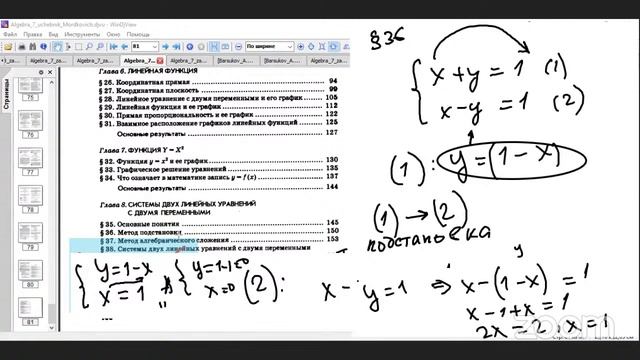 Algebra_7_uchebnik_Mordkovich.djvu - WinDjView
Файл Правка Вид Перейти Окно Помощь
81
По ширине
Страницы
75
76
77
78
79
80
81
Глава 6. ЛИНЕЙНАЯ ФУНКЦИЯ
§ 26. Координатная прямая 94
§ 27. Координатная плоскость 99
§ 28. Линейное уравнение с двумя переменными и его график 105
§ 29. Линейная функция и ее график 112
§ 30. Прямая пропорциональность и ее график 122
§ 31. Взаимное расположение графиков линейных функций 125
Основные результаты 127
Глава 7. ФУНКЦИЯ Y = X²
§ 32. Функция y = x² и ее график 130
§ 33. Графическое решение уравнений 135
§ 34. Что означает в математике запись y = f(x) 137
Основные результаты 144
Глава 8. СИСТЕМЫ ДВУХ ЛИНЕЙНЫХ УРАВНЕНИЙ
С ДВУМЯ ПЕРЕМЕННЫМИ
§ 35. Основные понятия 145
§ 36. Метод подстановки 150
§ 37. Метод алгебраического сложения 153
§ 38. Системы двух линейных уравнений с двумя переменными
§36
x+y = 1 (1)
x-y = 1 (2)
(1): y = (1-x)
(1) → (2)
подстановка
y=1-x
x=1
y=1-1=0
(2): x - y = 1 ⇒ x-(1-x) = 1
y
x-1+x = 1
2x = 2, x = 1
zoom